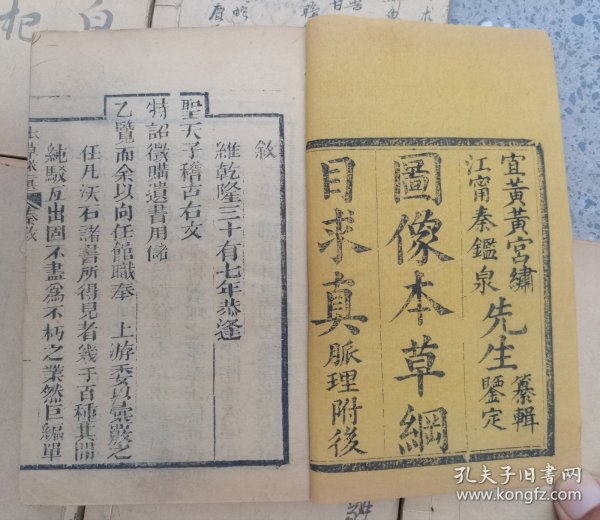 宜黃黃宮繡
江甯秦鑑泉
先生
纂輯
鑒定
圖像本草綱
目求真
脈理附後
敘
維乾隆三十有七年恭逢
聖天子稽古右文
特詔徵購遺書用備
乙覽而余以向任館職奉 上游委以彙嚴之
任凡沃石諸書所得見者幾于百種其間
純駁互出固不盡爲不朽之業然巨編單
孔夫子旧书网
www.kongfz.com